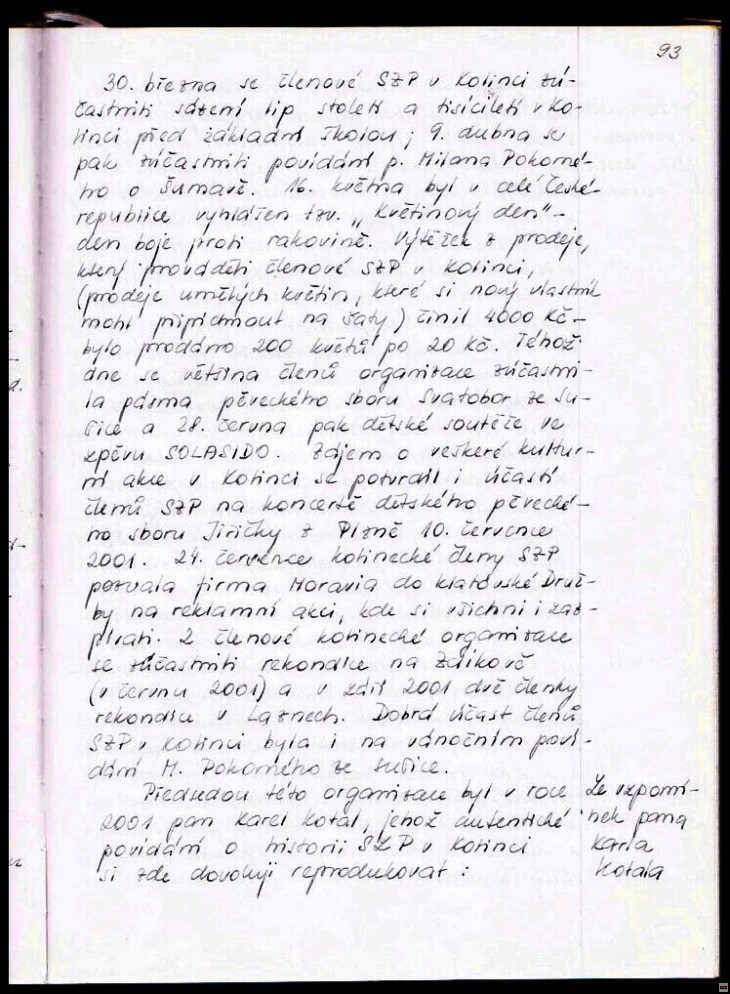 93
30. března se členové SZP v Kolinci zú-
častnili sázení lip století a tisíciletí v Ko-
linci před základní školou; 9. dubna se
pak zúčastnili povídání p. Milana Pokorné-
ho o Šumavě. 16. května byl v celé České
republice vyhlášen tzv. „Květinový den" -
den boje proti rakovině. Výtěžek z prodeje,
který prováděli členové SZP v Kolinci,
(prodeje umělých květin, které si nový vlastník
mohl připíchnout na šaty) činil 4000 Kč -
bylo prodáno 200 květů po 20 Kč. Téhož
dne se většina členů organizace zúčastni-
la pásma pěveckého sboru Svatobor ze Su-
šice a 28. června pak dětské soutěže ve
zpěvu SOLASIDO. Zájem o veškeré kultur-
ní akce v Kolinci se potvrdil i účastí
členů SZP na koncertě dětského pěvecké-
ho sboru Jiřičky z Plzně 10. července
2001. 24. července kolinecké členy SZP
pozvala firma Moravia do klatovské Druž-
by na reklamní akci, kde si všichni i zaz-
pívali. 2 členové kolinecké organizace
se zúčastnili rekondice na Zdíkově
(v červnu 2001) a v září 2001 dvě členky
rekondice v Lázních. Dobrá účast členů
SZP v Kolinci byla i na vánočním poví-
dání M. Pokorného ze Sušice.
Předsedou této organizace byl v roce
2001 pan Karel Kotál, jehož autentické
povídání o historii SZP v Kolinci
si zde dovoluji reprodukovat:
Ze vzpomí-
nek pana
Karla
Kotála